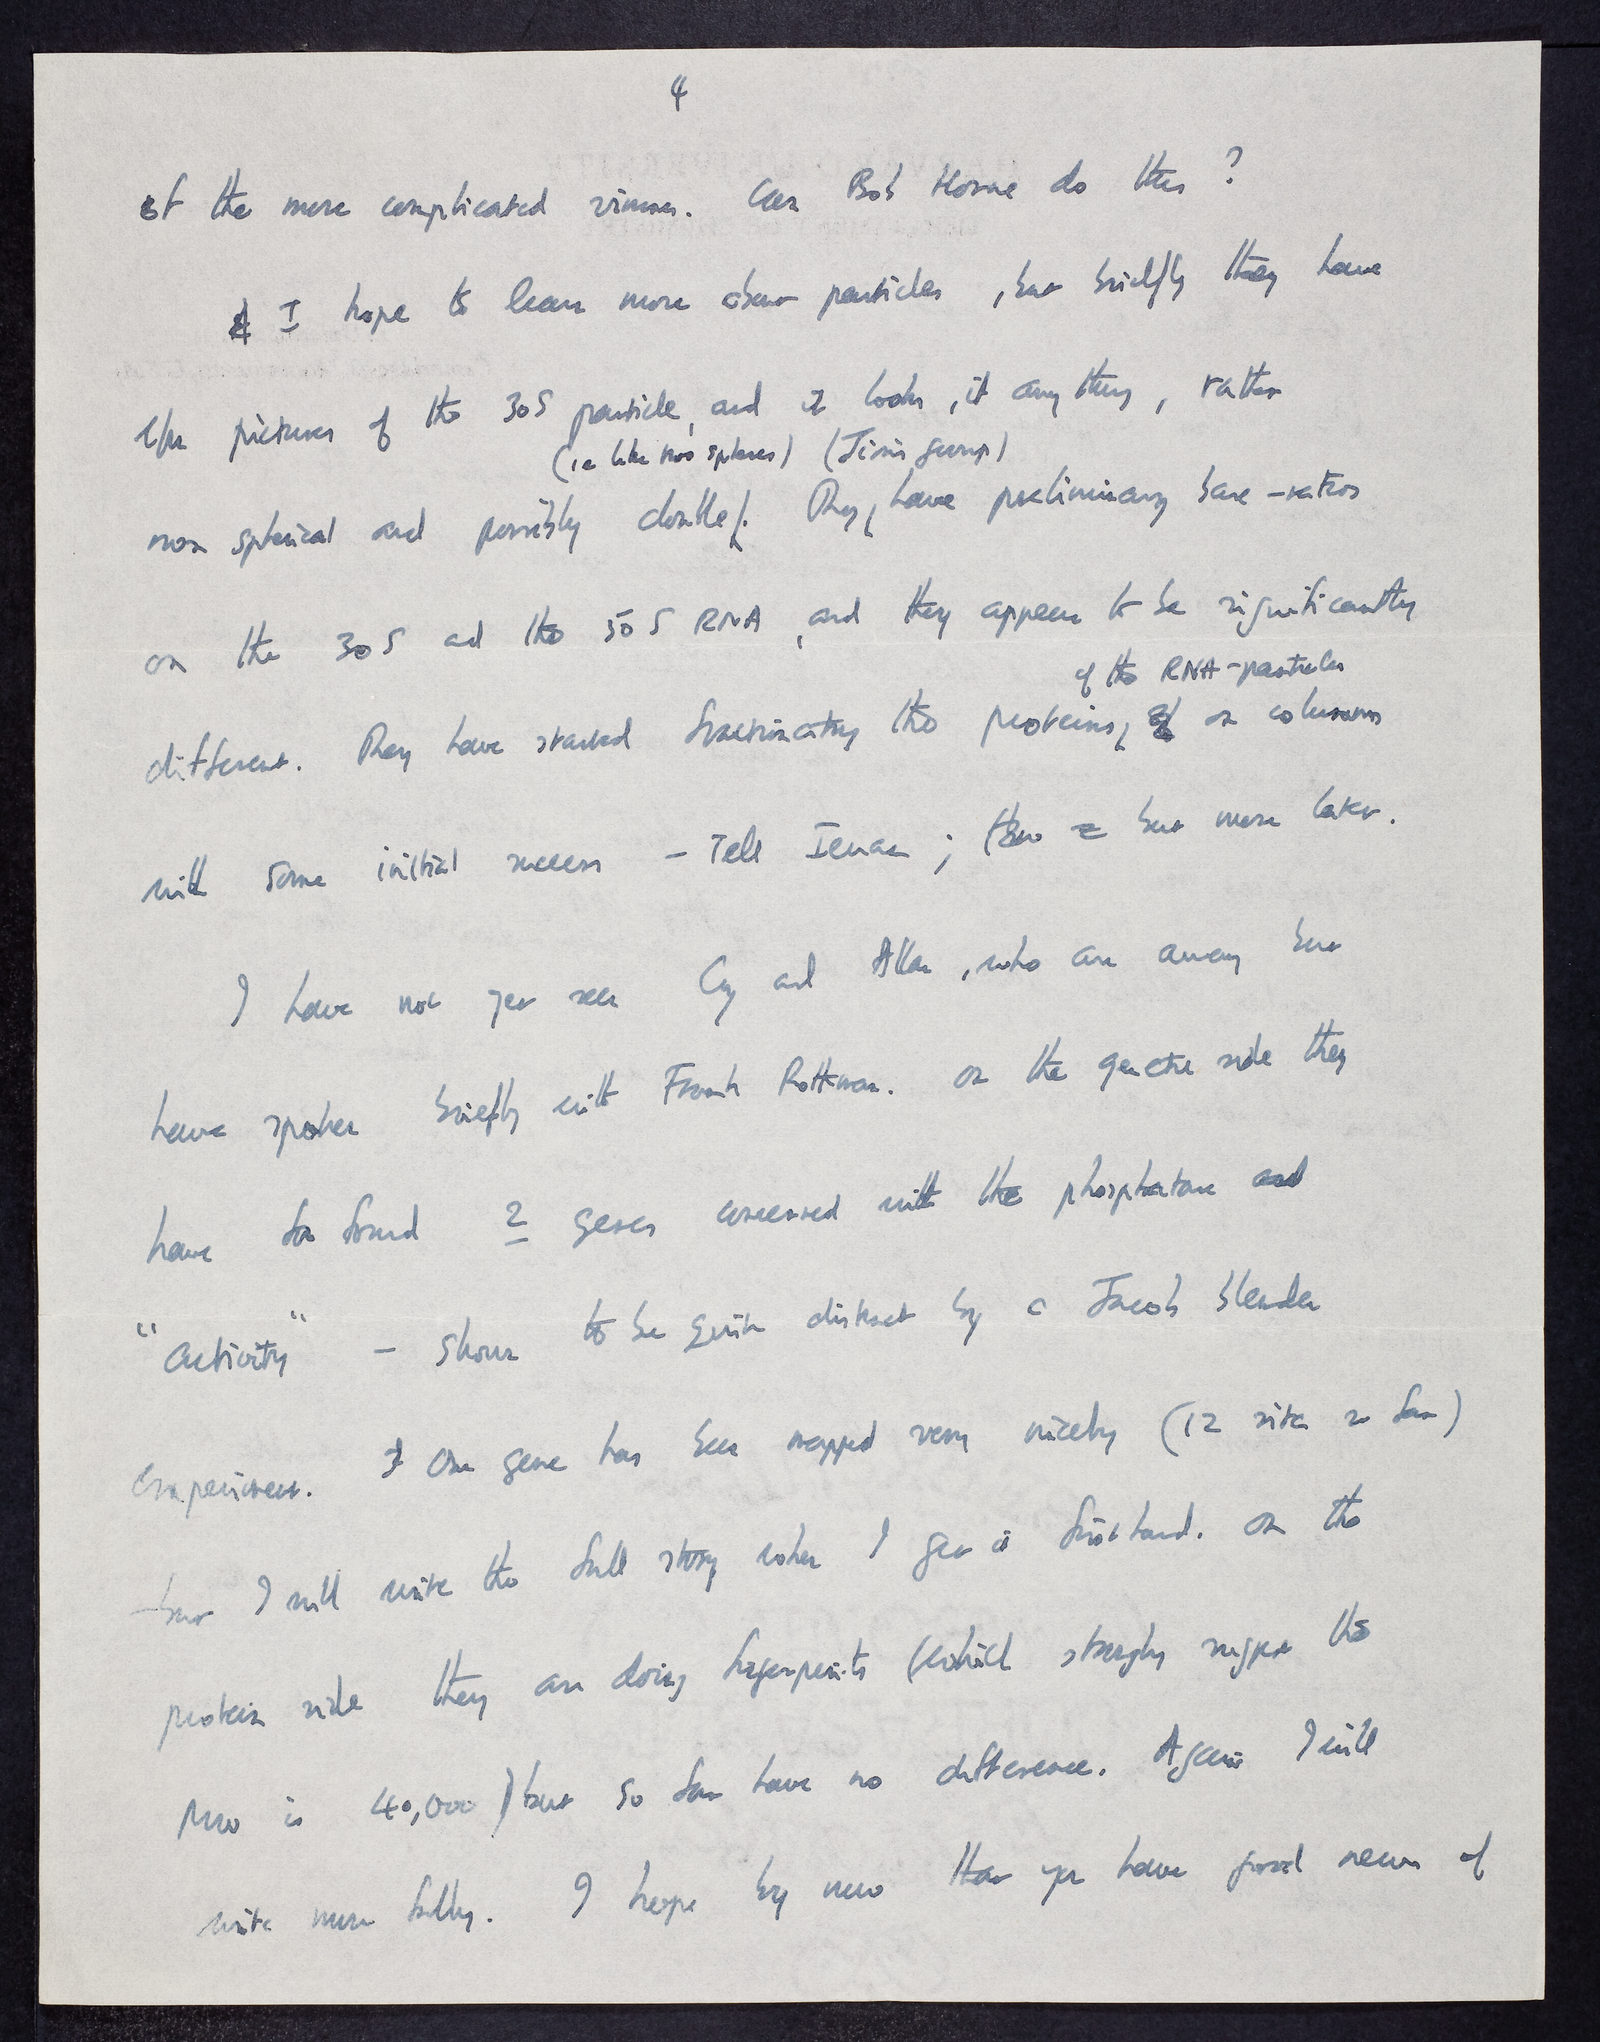 4
of the more complicated viruses. Can Bob Horne do this ?
I hope to learn more about particles , but briefly they have
E/M pictures of the 30S particle, and it looks , if anything , rather
(ie like two spheres) (Jim's group)
non spherical and possibly double. They have preliminary base-ratios
on the 30S and the 50S RNA , and they appear to be significantly
of the RNA-particles
different. They have started fractionating the proteins, on columns
with some initial success – Tell Ieuan ; but more later.
I have not yet seen Cy and Allan , who are away but
have spoken briefly with Frank Rothman. On the genetic side they
have found 2 genes concerned with the phosphatase
"activity" – shown to be quite distinct by a Jacob blender
experiment. One gene has been mapped very nicely (12 sites so far)
but I will write the full story when I get it firsthand. On the
protein side they are doing fingerprints (which strongly suggest the
MW is 40,000) but so far have no difference. Again I will
write more fully. I hope by now that you have good news of